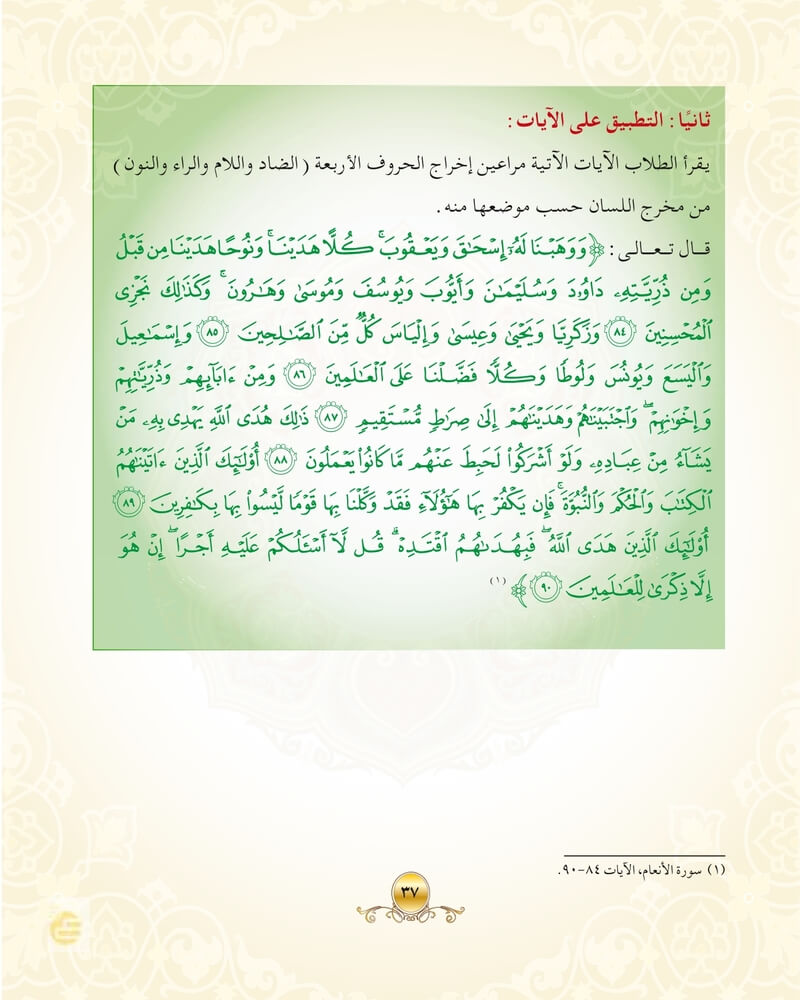 ثانيًا : التطبيق على الآيات :
يقرأ الطلاب الآيات الآتية مراعين إخراج الحروف الأربعة ( الضاد واللام والراء والنون )
من مخرج اللسان حسب موضعها منه .
قـال تـعـالـى : ﴿ وَوَهَبْنَا لَهُۥٓ إِسْحَٰقَ وَيَعْقُوبَ ۚ كُلًّا هَدَيْنَا ۚ وَنُوحًا هَدَيْنَا مِن قَبْلُ
وَمِن ذُرِّيَّتِهِۦ دَاوُۥدَ وَسُلَيْمَٰنَ وَأَيُّوبَ وَيُوسُفَ وَمُوسَىٰ وَهَٰرُونَ ۚ وَكَذَٰلِكَ نَجْزِى
الْمُحْسِنِينَ ٨٤ وَزَكَرِيَّا وَيَحْيَىٰ وَعِيسَىٰ وَإِلْيَاسَ كُلٌّ مِّنَ الصَّٰلِحِينَ ٨٥ وَإِسْمَٰعِيلَ
وَالْيَسَعَ وَيُونُسَ وَلُوطًا وَكُلًّا فَضَّلْنَا عَلَى الْعَٰلَمِينَ ٨٦ وَمِنْ ءَابَآئِهِمْ وَذُرِّيَّٰتِهِمْ
وَإِخْوَٰنِهِمْ ۖ وَاجْتَبَيْنَٰهُمْ وَهَدَيْنَٰهُمْ إِلَىٰ صِرَٰطٍ مُّسْتَقِيمٍ ٨٧ ذَٰلِكَ هُدَى اللَّهِ يَهْدِى بِهِۦ مَن
يَشَآءُ مِنْ عِبَادِهِۦ وَلَوْ أَشْرَكُوا۟ لَحَبِطَ عَنْهُم مَّا كَانُوا۟ يَعْمَلُونَ ٨٨ أُو۟لَٰٓئِكَ الَّذِينَ ءَاتَيْنَٰهُمُ
الْكِتَٰبَ وَالْحُكْمَ وَالنُّبُوَّةَ ۚ فَإِن يَكْفُرْ بِهَا هَٰٓؤُلَآءِ فَقَدْ وَكَّلْنَا بِهَا قَوْمًا لَّيْسُوا۟ بِهَا بِكَٰفِرِينَ ٨٩
أُو۟لَٰٓئِكَ الَّذِينَ هَدَى اللَّهُ ۖ فَبِهُدَىٰهُمُ اقْتَدِهْ ۗ قُل لَّآ أَسْـَٔلُكُمْ عَلَيْهِ أَجْرًا ۖ إِنْ هُوَ
إِلَّا ذِكْرَىٰ لِلْعَٰلَمِينَ ٩٠ ﴾ (١)
(١) سورة الأنعام، الآيات ٨٤-٩٠.
٣٧